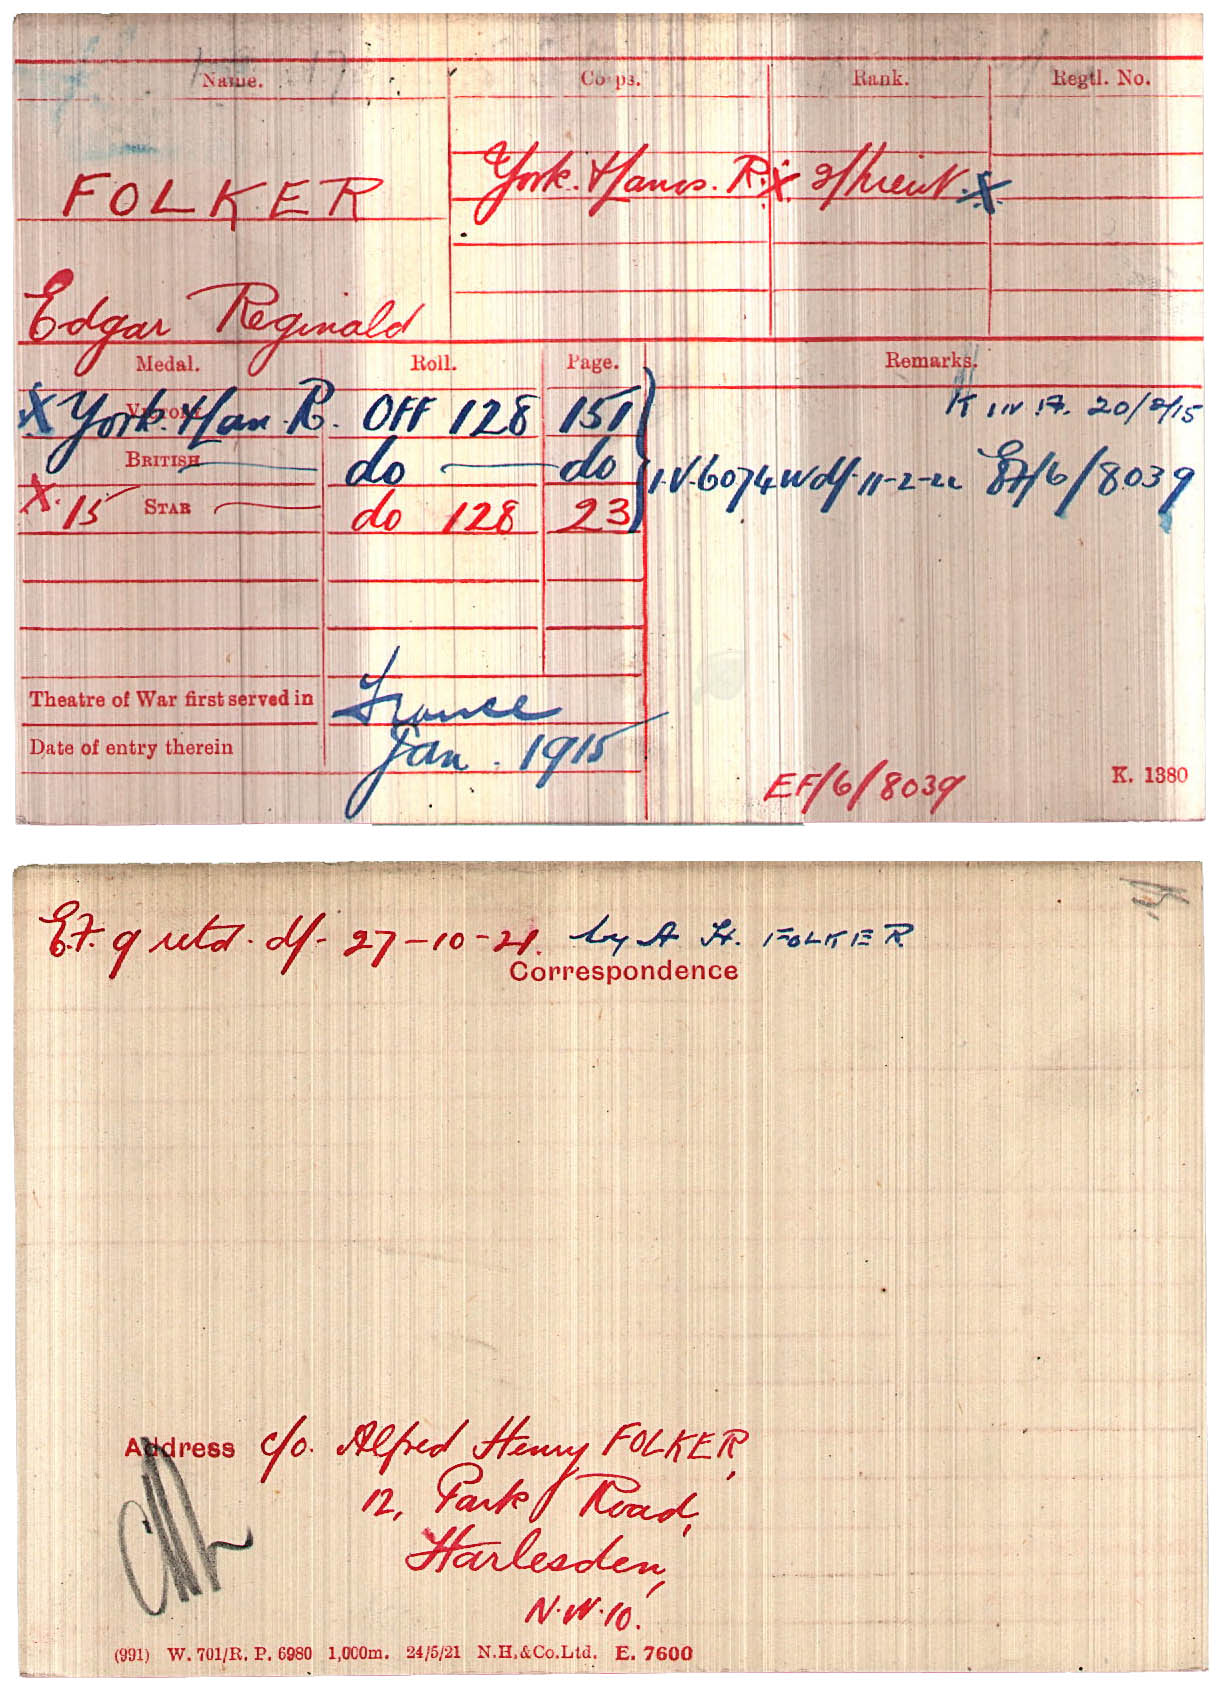 Name. Corps. Rank. Regtl. No.
FOLKER York. & Lancs. R. X 2/Lieut. X
Edgar Reginald
Medal. Roll. Page. Remarks.
X VICTORY York. & Lan. R. OFF 128 151 K in A. 20/2/15
BRITISH do do I.V. 6074 W df. 11-2-22 EF/6/8039
X. 15 STAR do 128 23
Theatre of War first served in France
Date of entry therein Jan. 1915
EF/6/8039 K. 1380
E.F. 9 retd. df- 27-10-21. by A H. FOLKER
Correspondence
Address c/o. Alfred Henry FOLKER,
12, Park Road,
Harlesden,
N.W.10.
(991) W. 701/R. P. 6980 1,000m. 24/5/21 N.H.&Co.Ltd. E. 7600